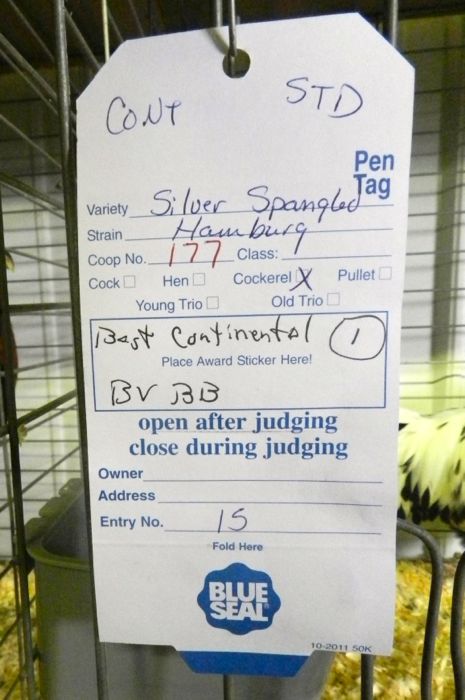 CONT STD
Pen
Tag
Variety Silver Spangled
Strain Hamburg
Coop No. 177 Class:
Cock Hen Cockerel X Pullet
Young Trio Old Trio
Best Continental 1
Place Award Sticker Here!
BV BB
open after judging
close during judging
Owner
Address
Entry No. 15
Fold Here
BLUE
SEAL
10-2011 50K